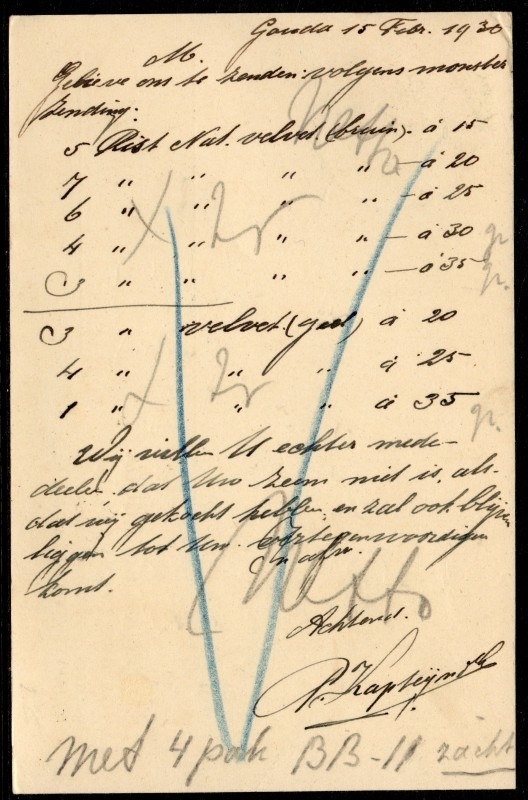 Gouda 15 Febr. 1930
M.
Gelieve ons te zenden volgens monster
zending:
5 Rist Nat. velvet (bruin) - á 15
7 " " " " - á 20
6 " " " " - á 25
4 " " " " - á 30 gr.
3 " " " " - á 35 gr.
3 " velvet. (geel) á 20
4 " " " á 25
1 " " " á 35 gr.
Wij willen U echter mede-
deelen dat Uw zeem niet is, als-
dat wij gekocht hebben, en zal ook blijven
liggen tot Uw. vertegenwoordiger
komt.
Achtend.
P. Kapteijn
Netto
Netto
met 4 pak BB-11 zacht